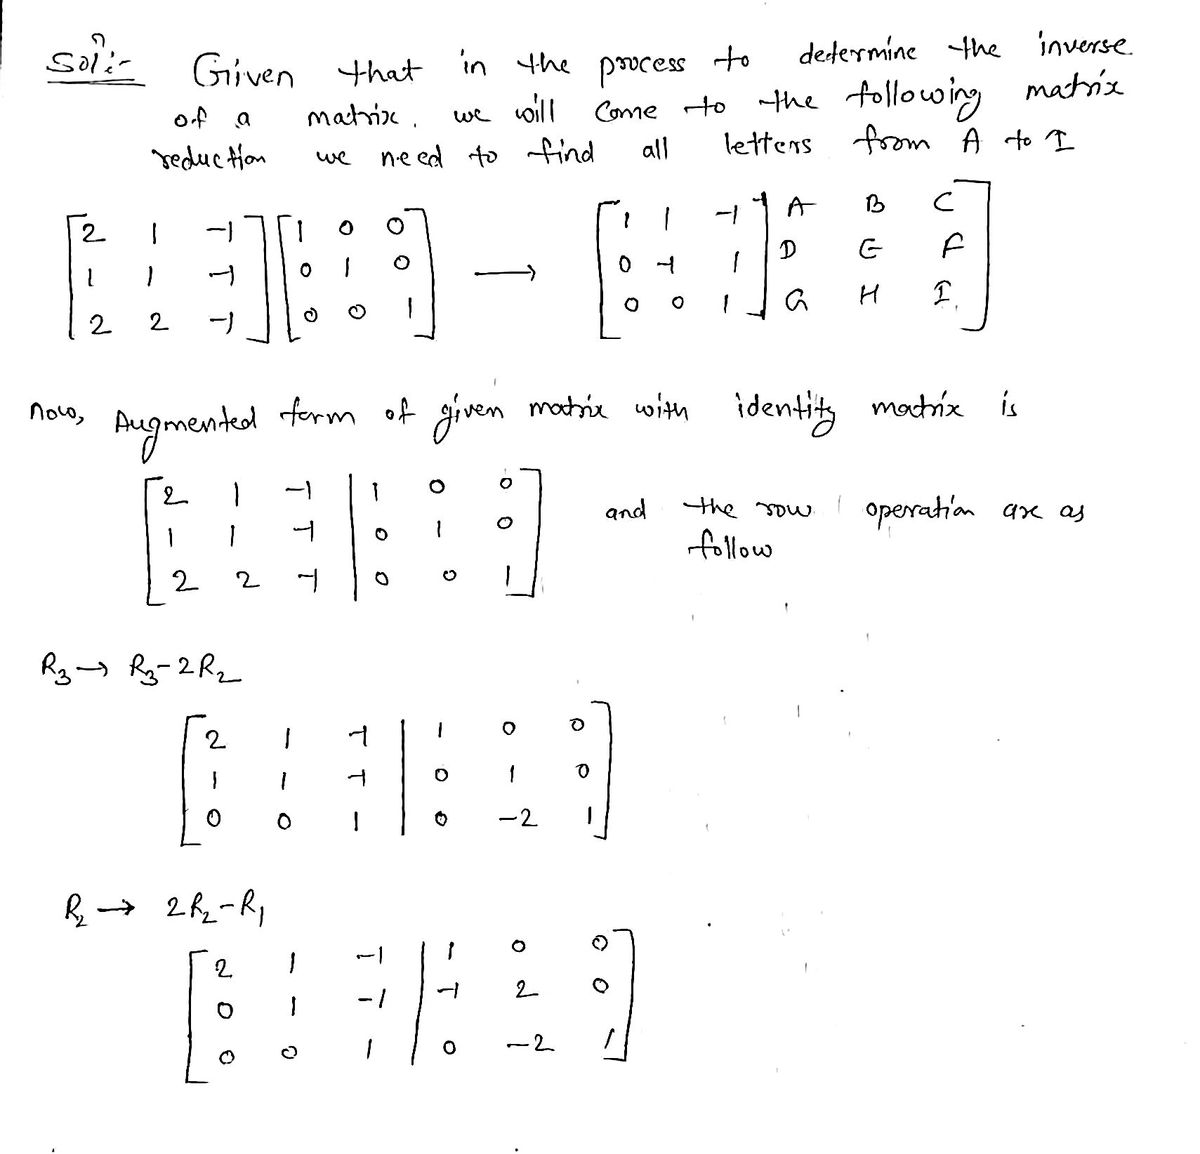 Sol?:- Given that in the process to determine the inverse
of a matrix, we will come to the following matrix
reduction we need to find all letters from A to I
[2 1 -1] [1 0 0] → [1 1 -1] A B C]
[1 1 -1] [0 1 0] [0 -1 1] D E F]
[2 2 -1] [0 0 1] [0 0 1] G H I.]
Now, Augmented form of given matrix with identity matrix is
[2 1 -1 | 1 0 0]
[1 1 -1 | 0 1 0] and the row operation are as
follow
[2 2 -1 | 0 0 1]
R3 → R3-2R2
[2 1 -1 | 1 0 0]
[1 1 -1 | 0 1 0]
[0 0 1 | 0 -2 1]
R2 → 2R2-R1
[2 1 -1 | 1 0 0]
[0 1 -1 | -1 2 0]
[0 0 1 | 0 -2 1]